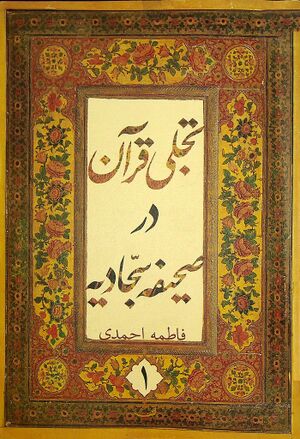 تجلی قرآن
در
صحیفه سجّادیه
فاطمه احمدی
۱